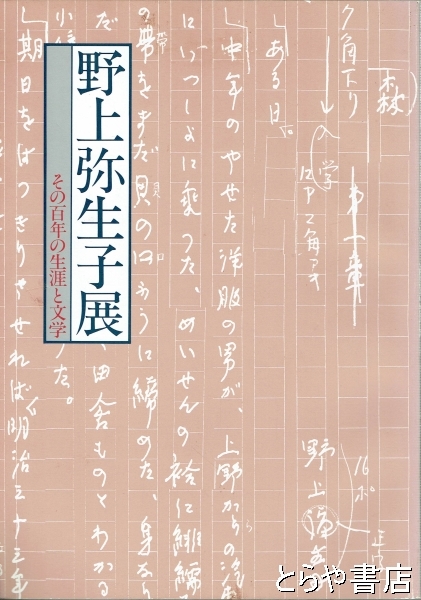 野上弥生子展
その百年の生涯と文学
森
第一章
野上
16ポ
ある日
中年のやせた洋服の男が、上野からの汽
にいつしよに乗つた、めいせんの袷に緋繻
の帯をまだ貝の口ふうに締めた、身なら
田舎ものとわかる
期日をはつきりさせれば明治三十三年
とらや書店